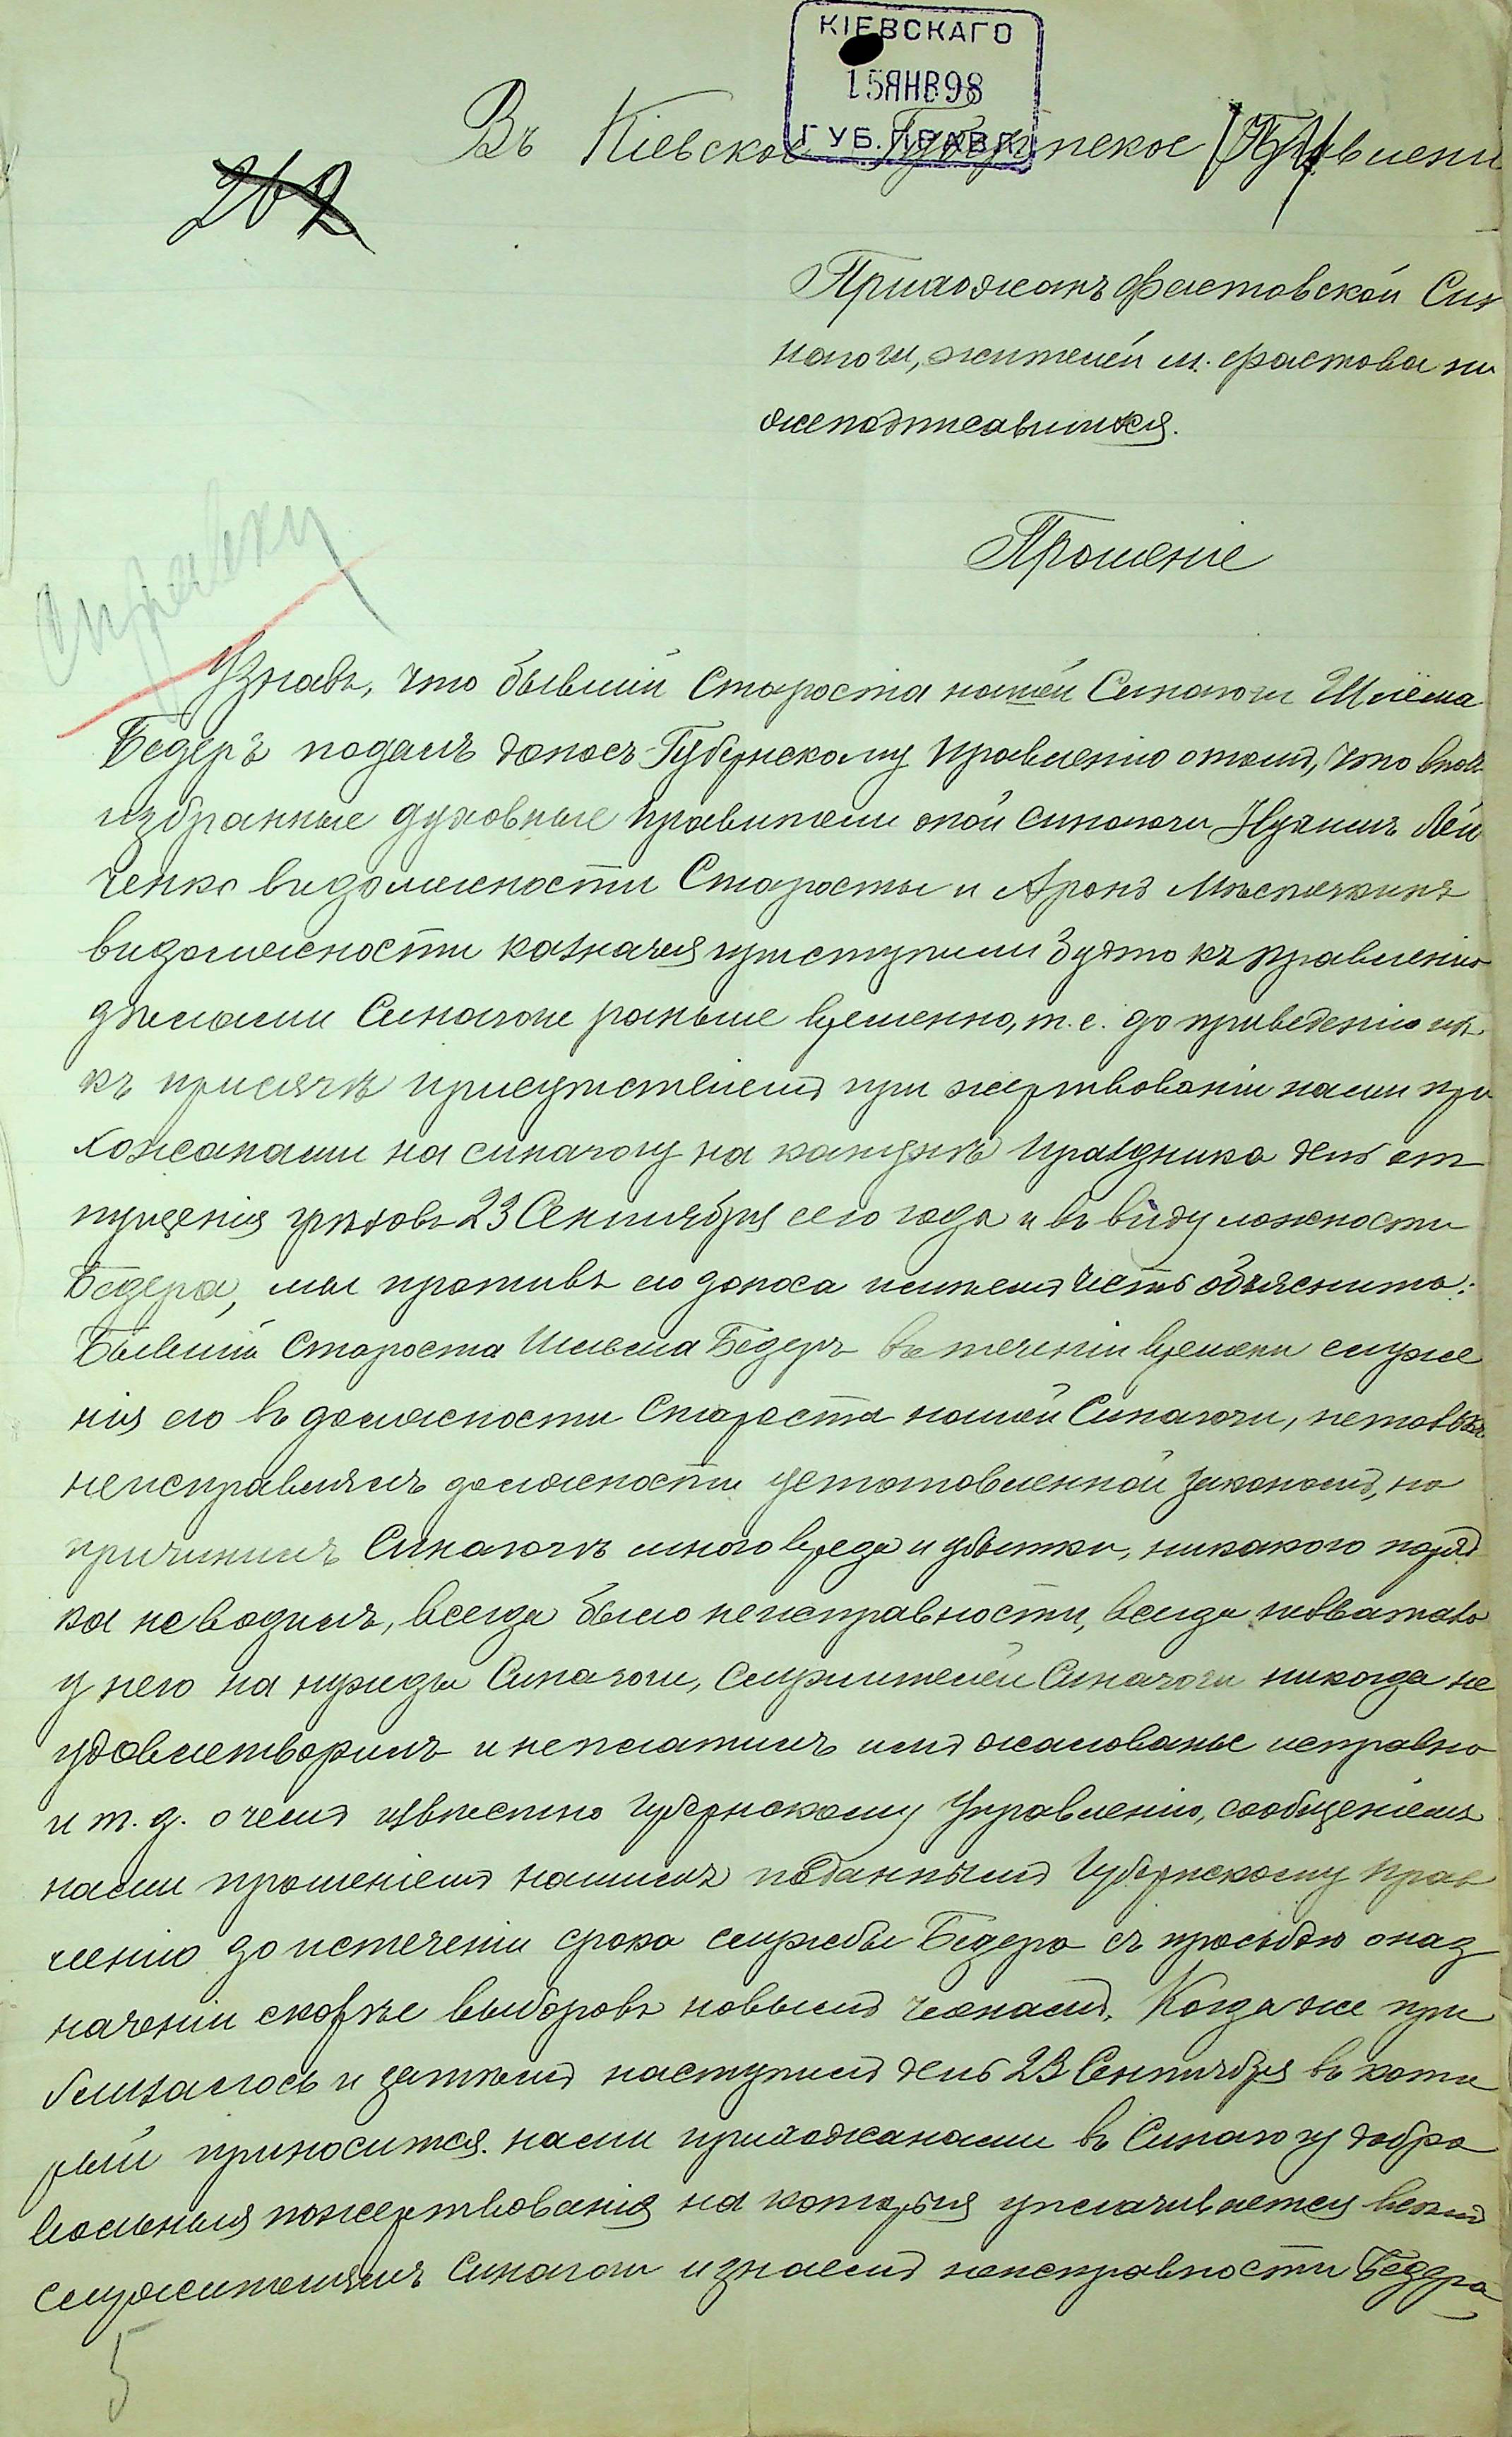 КІЕВСКАГО
15 ЯНВ 98
ГУБ. ПРАВЛ.
Въ Кіевское Губернское Правлени
Прихожанъ Фастовской Сина
гоги, жителей м. Фастова ни
жеподписавшихся.
Прошеніе
Справку
Узнавъ, что бывшій Староста нашей Синагоги Шлёма
Бедеръ подалъ доносъ Губернскому Правленію отомъ, что вновь
избранные духовные правители оной синагоги Нухимъ Лей
ченко видолжности Старосты и Аронъ
видолжности казначея приступили будто къ правленію
дѣлами Синагоги раньше времянно, т. е. до приведенію ихъ
къ присягѣ присутствіемъ при жертвованіи нами при
хожанами на синагогу на канунѣ праздника день от
пущенія грѣховъ 23 Сентября сего года и въ виду ложности
Бедера, мы противъ его доноса имѣемъ честь объяснить:
Бывшій Староста Шлема Бедеръ въ теченіи времени служе
нія его въ должности Староста нашей Синагоги, нетолько
неисправлялъ должности установленной закономъ, но
причинилъ Синагогѣ много вреда и убытки, никакого поряд
ка не водилъ, всегда было неисправности, всегда нехватало
у него на нужды Синагоги, служителей Синагоги никогда не
удовлетворилъ и неплатилъ имъ жалованье исправно
и т. д. о чемъ извѣстно Губернскому Управленію, сообщеніемъ
нами прошеніемъ нашимъ поданнымъ Губернскому Прав
ленію до истеченіи срока службы Бедера съ просьбою о наз
наченіи скорѣе выборовъ новымъ членамъ. Когда же при
близалось и затѣмъ наступилъ день 23 Сентября въ кото
рый приносится нами прихожанами въ Синагогу добро
вольныя пожертвованія на которыя уплачивается всѣмъ
служителямъ Синагоги изнаемъ неисправности Бедера
5